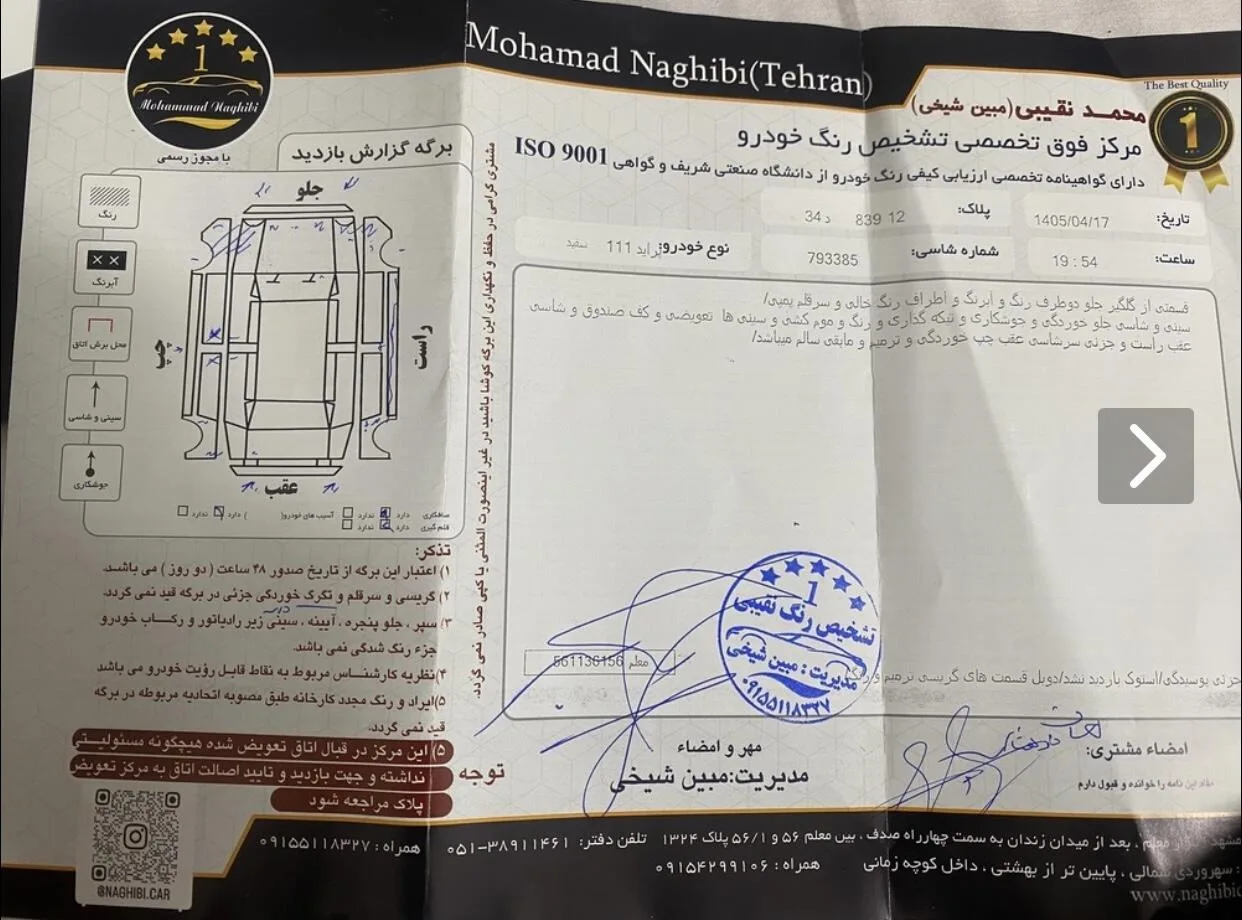 Mohamad Naghibi(Tehran)
The Best Quality
1
محمد نقیبی(مبین شیخی)
مرکز فوق تخصصی تشخیص رنگ خودرو
دارای گواهینامه تخصصی ارزیابی کیفی رنگ خودرو از دانشگاه صنعتی شریف و گواهی ISO 9001
تاریخ: 1405/04/17
پلاک: 12 839 د 34
ساعت: 19 : 54
شماره شاسی: 793385
نوع خودرو: پراید 111 سفید
قسمتی از گلگیر جلو دوطرف رنگ و آبرنگ و اطراف رنگ خالی و سرقلم یمیی/
سینی و شاسی جلو خوردگی و جوشکاری و تیکه گذاری و رنگ و موم کشی و سینی ها تعویضی و کف صندوق و شاسی
عقب راست و جزئی سرشاسی عقب چپ خوردگی و ترمیم و مابقی سالم میباشد/
معلم 561136156
جزئی پوسیدگی/استوک بازدید نشد/دوبل قسمت های گریسی ترمیم و رنگ
1
تشخیص رنگ نقیبی
مدیریت: مبین شیخی
۰۹۱۵۵۱۱۸۳۲۷
مهر و امضاء
مدیریت:مبین شیخی
امضاء مشتری:
مفاد این نامه را خوانده و قبول دارم
1
Mohammad Naghibi
با مجوز رسمی
برگه گزارش بازدید
رنگ
آبرنگ
محل برش اتاق
سینی و شاسی
جوشکاری
جلو
چپ
راست
عقب
صافکاری دارد ندارد آسیب های خودرو( ) دارد ندارد
قلم گیری دارد ندارد
مشتری گرامی در حفظ و نگهداری این برگه کوشا باشید در غیر اینصورت المثنی یا کپی صادر نمی گردد.
تذکر:
۱) اعتبار این برگه از تاریخ صدور ۴۸ ساعت ( دو روز ) می باشد.
۲) گریسی و سرقلم و تگرگ خوردگی جزئی در برگه قید نمی گردد.
۳) سپر ، جلو پنجره ، آیینه ، سینی زیر رادیاتور و رکاب خودرو
جزء رنگ شدگی نمی باشد.
۴)نظریه کارشناس مربوط به نقاط قابل رؤیت خودرو می باشد
۵)ایراد و رنگ مجدد کارخانه طبق مصوبه اتحادیه مربوطه در برگه
قید نمی گردد.
۵) این مرکز در قبال اتاق تعویض شده هیچگونه مسئولیتی
نداشته و جهت بازدید و تایید اصالت اتاق به مرکز تعویض
پلاک مراجعه شود
توجه
@NAGHIBI.CAR
معلم ، بعد از میدان زندان به سمت چهارراه صدف ، بین معلم ۵۶ و ۵۶/۱ پلاک ۱۳۲۴ تلفن دفتر: ۳۸۹۱۱۴۶۱-۰۵۱ همراه : ۰۹۱۵۵۱۱۸۳۲۷
سهروردی شمالی ، پایین تر از بهشتی ، داخل کوچه زمانی همراه : ۰۹۱۵۴۲۹۹۱۰۶
www.naghibi